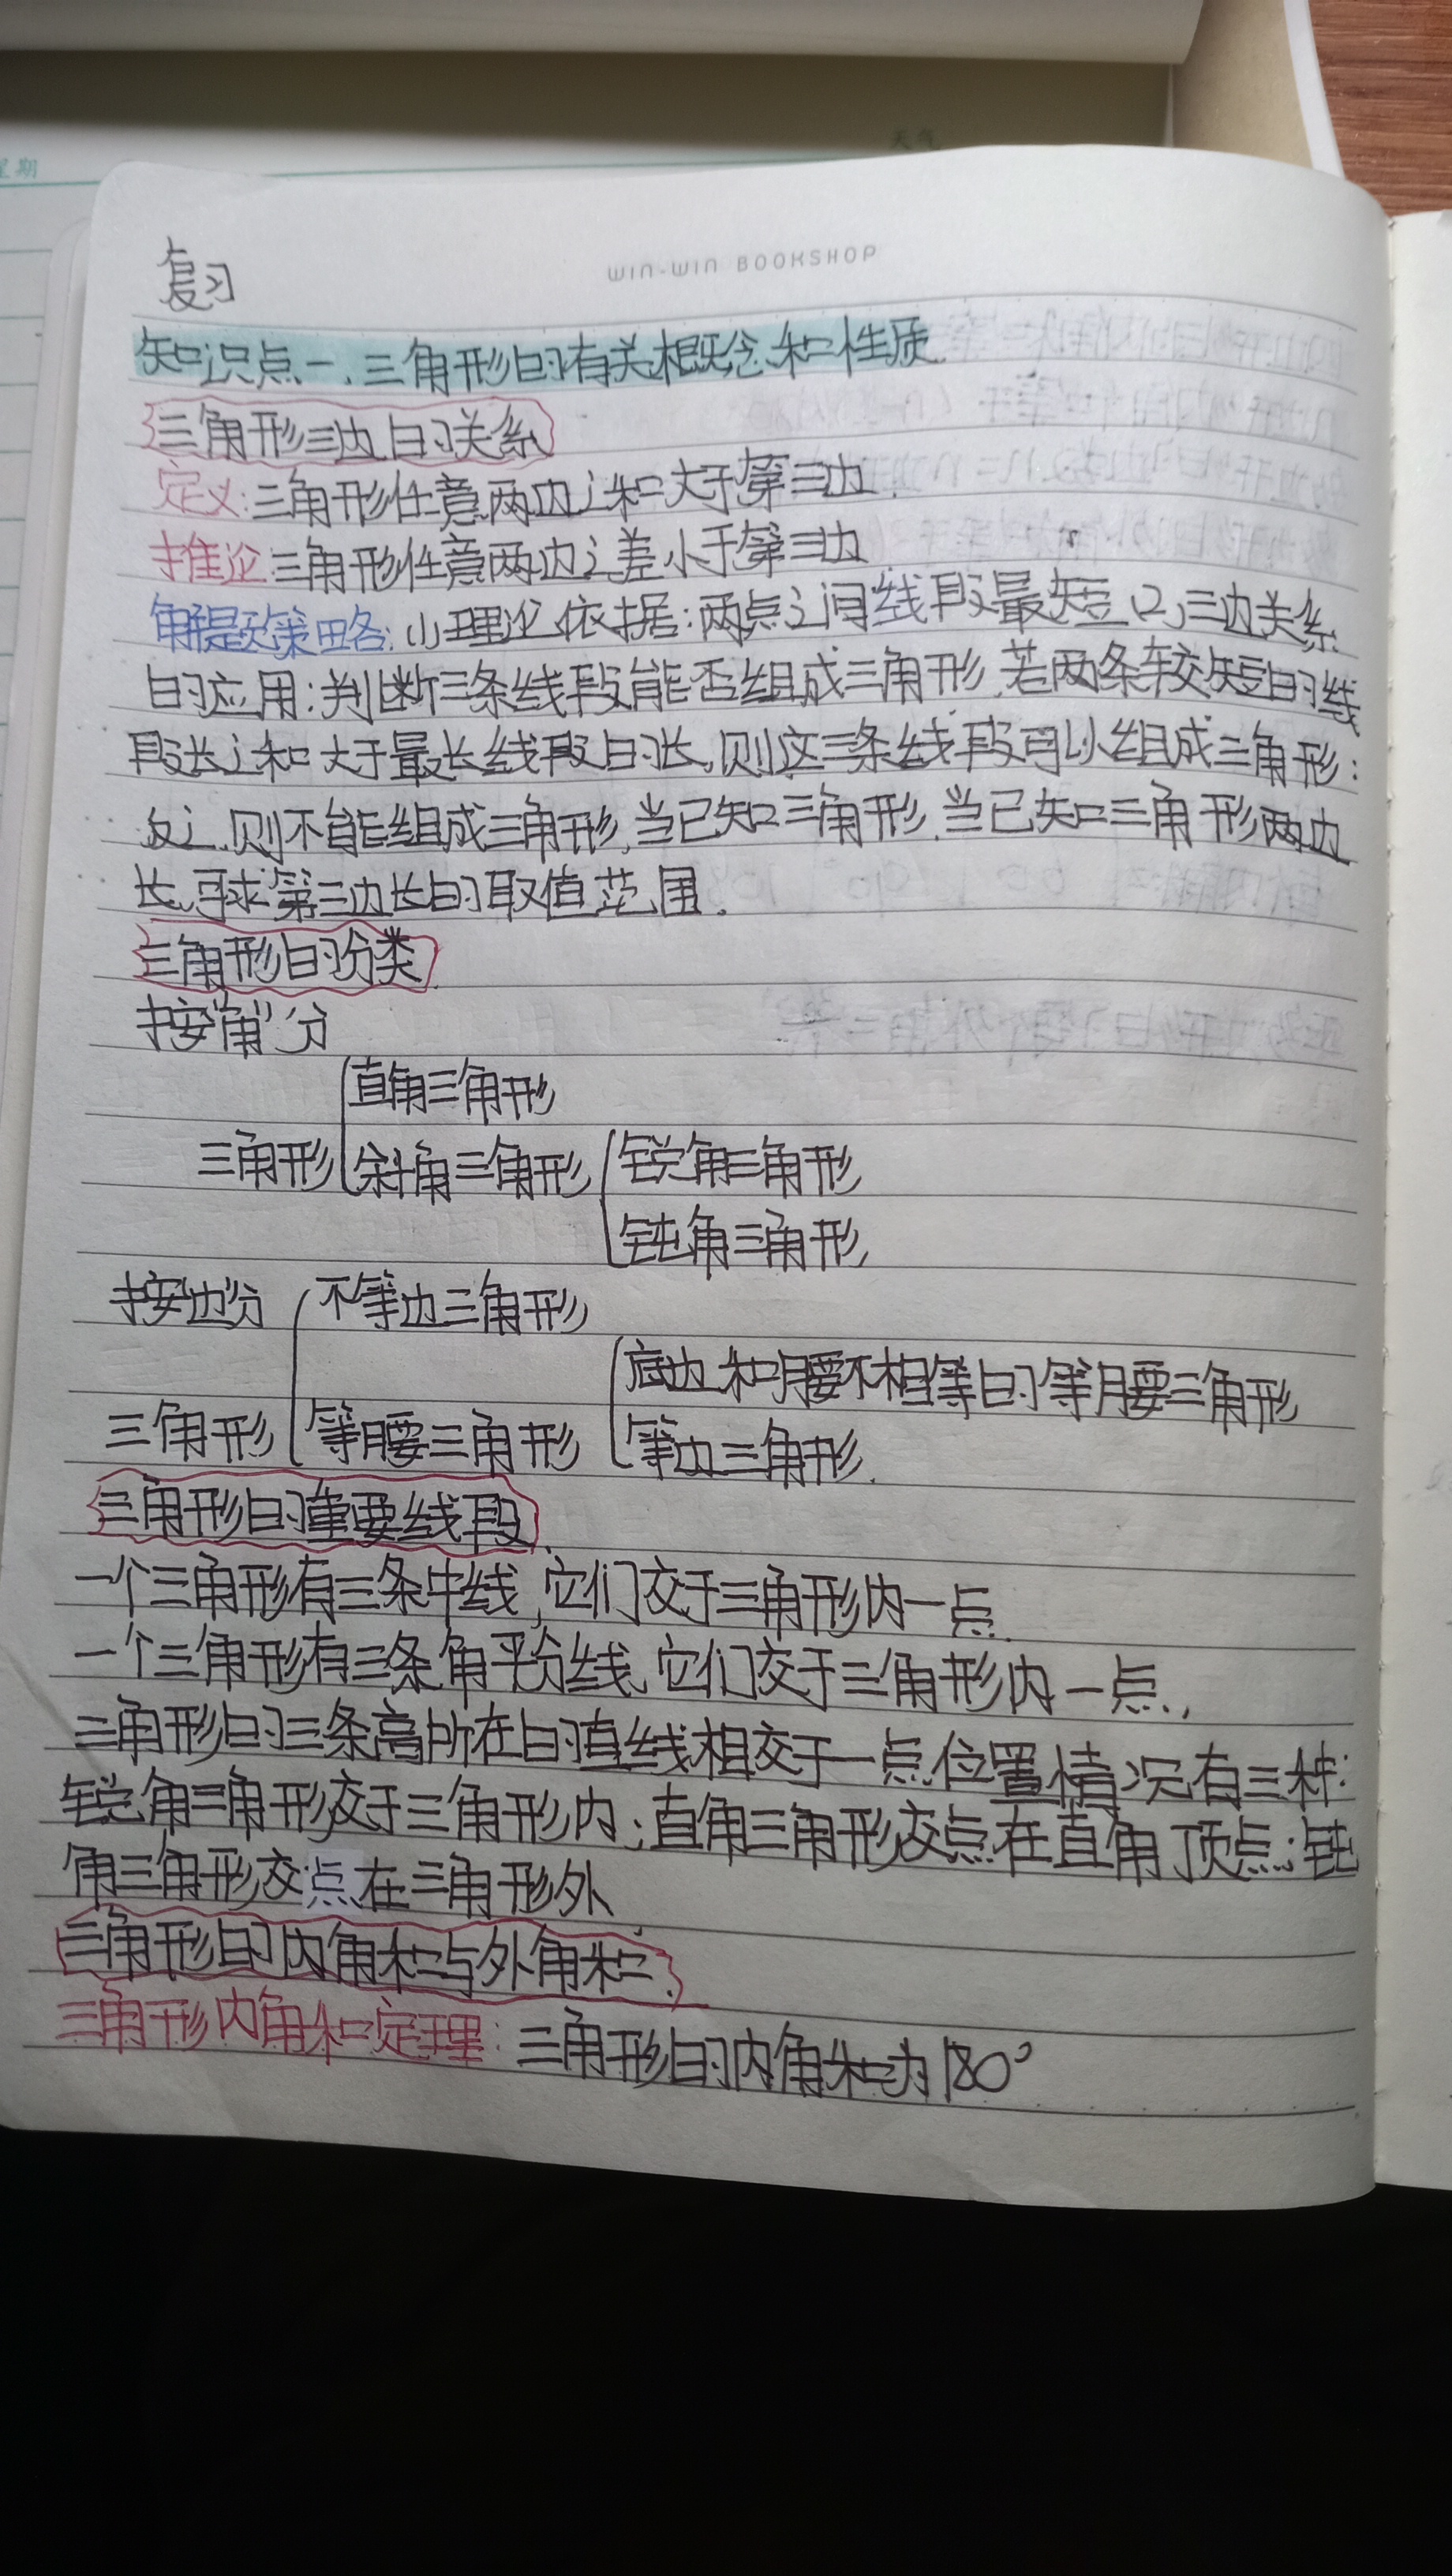 星期
天气
WIN-WIN BOOKSHOP
复习
知识点一、三角形的有关概念和性质
三角形三边的关系
定义:三角形任意两边之和大于第三边.
推论:三角形任意两边之差小于第三边
解题策略:(1)理论依据:两点之间线段最短(2)三边关系
的应用:判断三条线段能否组成三角形,若两条较短的线
段长之和大于最长线段的长,则这三条线段可以组成三角形;
反之,则不能组成三角形,当已知三角形,当已知三角形两边
长,寻求第三边长的取值范围.
三角形的分类
按"角"分
直角三角形
三角形 斜角三角形 锐角三角形
钝角三角形
按边分 不等边三角形
底边和腰不相等的等腰三角形
三角形 等腰三角形 等边三角形.
三角形的重要线段
一个三角形有三条中线,它们交于三角形内一点.
一个三角形有三条角平分线,它们交于三角形内一点.
三角形的三条高所在的直线相交于一点位置情况有三种:
锐角三角形交于三角形内;直角三角形交点在直角顶点;钝
角三角形交点在三角形外
三角形的内角和与外角和
三角形内角和定理:三角形的内角和为180°